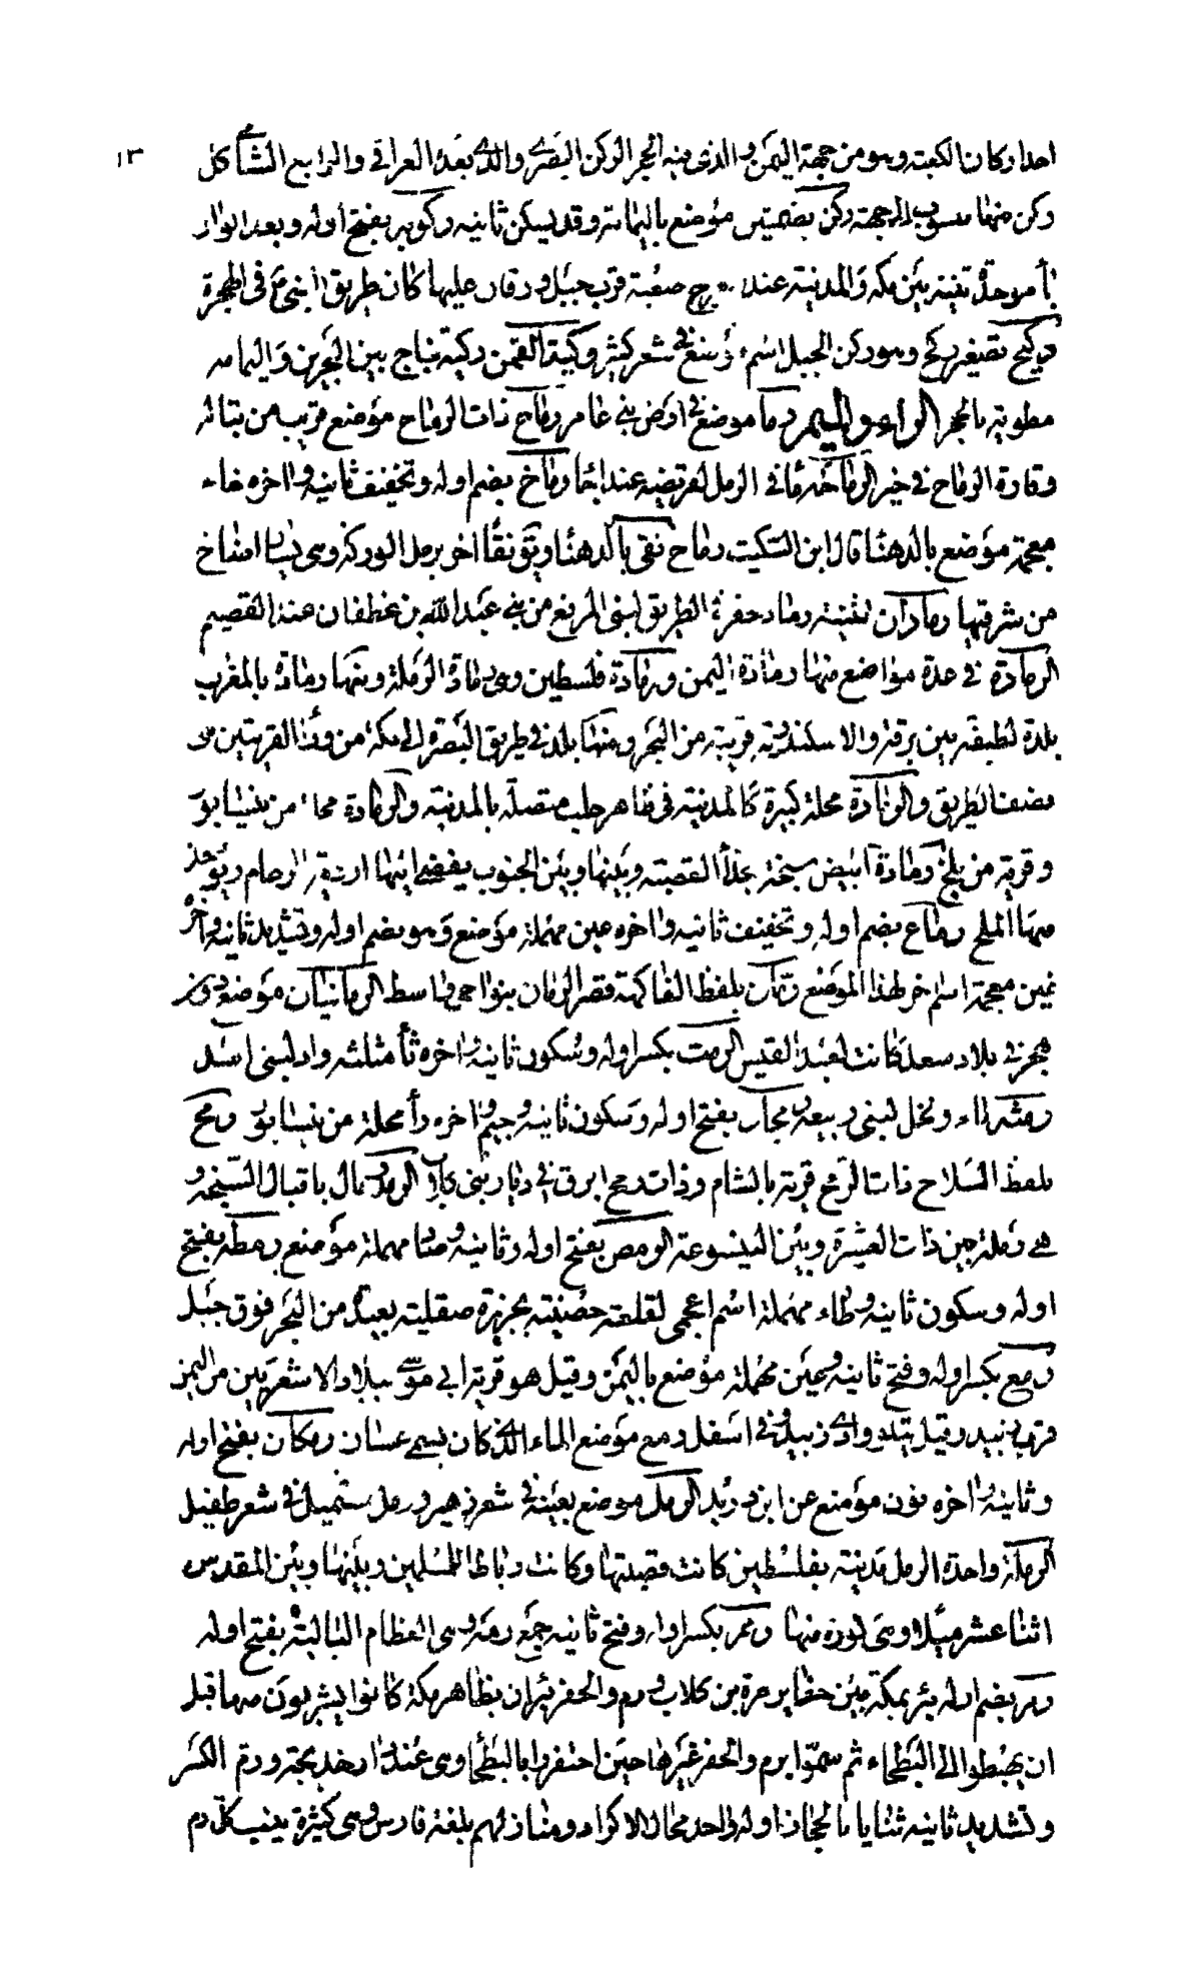 ١٣
احد اركان الكعبة وهو من جهة اليمن والذى فيه الحجر الركن البصرى والذى بعده العراقى والرابع الشامى كل
ركن منها منسوب الى جهته ركن بضمتين موضع باليمامة وقد يسكن ثانيه ركوبه بفتح اوله وبعد الواو
بأ موحدة ثنية بين مكة والمدينة عند العرج صعبة قرب جبل ورقان عليها كان طريق النبى فى الهجرة
ركيح تصغير ركح وهو ركن الجبل اسم موضع فى شعر كثير وكية لقمن ركية بثاج بين البحرين واليمامه
مطوية بالحجر الراء والميم رما موضع فى ارض بنى عامر رماح ذات الرماح موضع قريب من تباله
وقارة الرماح فى خبر الرماحه ماء فى الرمل لقريضه عند اجا رماخ بضم اوله وتخفيف ثانيه واخره خاء
معجمة موضع بالدهنا قال ابن السكيت رماح نقى بالدهنا وبقى نقا اخر برمل الوركة وهى يسار امفاخ
من شرقيها رمادان تثنية رماد حفر فى الطريق لبنى المرقع من بنى عبد الله بن غطفان عند القصيم
الرمادة فى عدة مواضع منها رمادة اليمن ورمادة فلسطين وهى رمادة الرملة ومنها رمادة بالمغرب
بلدة لطيفة بين برقة والاسكندرية قريبة من البحر ومنها بلد فى طريق البصرة الى مكة من وراء القريتين هى
نصف الطريق والرمادة محلة كبيرة كالمدينة فى ظاهر حلب متصلة بالمدينة والرمادة محلة من نيسابور
وقرية من بلخ رمادة ابيض سبخة بحذاء القصيبة وبينها وبين الجنوب يفضى اليها اودية الرحام ويؤخذ
منها الملح رماع بضم اوله وتخفيف ثانيه واخره عين مهملة موضع وهو بضم اوله وتشديد ثانيه واخره
غين معجمة اسم اخر لهذا الموضع رمان بلفظ الفاكهة قصر الرمان بنواحى واسط الرمانيان موضع دون
هجر فى بلاد سعد كانت لعبد القيس الرمث بكسر اوله وسكون ثانيه واخره ثأ مثلثه واد لبنى اسد
رمثه ماء ونخل لبنى ربيعة رمجار بفتح اوله وسكون ثانيه وجيم واخره رأ محلة من نيسابور رمح
بلفظ السلاح ذات الرمح قرية بالشام وذات رمح ابرق فى ديار بنى كلاب الرمد رمال باقبال الشيحة و
هى رملة بين ذات العشيرة وبين الينسوعة الرمص بفتح اوله وثانيه وصاد مهملة موضع رمطه بفتح
اوله وسكون ثانيه وطاء مهملة اسم اعجمى لقلعة حصينة بجزيرة صقلية بعيدة من البحر فوق جبل
رمع بكسر اوله وفتح ثانيه وعين مهملة موضع باليمن وقيل هو قرية ابى موسى ببلاد الاشعريين من اليمن
قرب زبيد وقيل يتلو وادى زبيد وفى اسفل رمع موضع الماء الذى كان يسمى غسان رمكان بفتح اوله
وثانيه واخره نون موضع عن ابن دريد الرمل موضع بعينه فى شعر زهير ورمل ستميل فى شعر طفيل
الرملة واحدة الرمل مدينة بفلسطين كانت قصبتها وكانت رباطا للمسلمين وبينها وبين المقدس
اثنا عشر ميلا وهى كورة منها رمم بكسر اوله وفتح ثانيه جمع رمة وهى العظام البالية بفتح اوله
رم بضم اوله بئر بمكة بين حفاير مرة بن كلاب ورم والحفر بئران بظاهر مكة كانوا يشربون منهما قبل
ان يهبطوا الى البطحاء ثم سموا برم والحفر غيرها حين احتفروا بالبطحا وهى عند دار خديجة ورم الكسر
وتشديد ثانيه ثنايا بالحجاز اوله واحد محال الاكراد ومنازلهم بلغة فارس وهى كثيرة ينسب كل رم